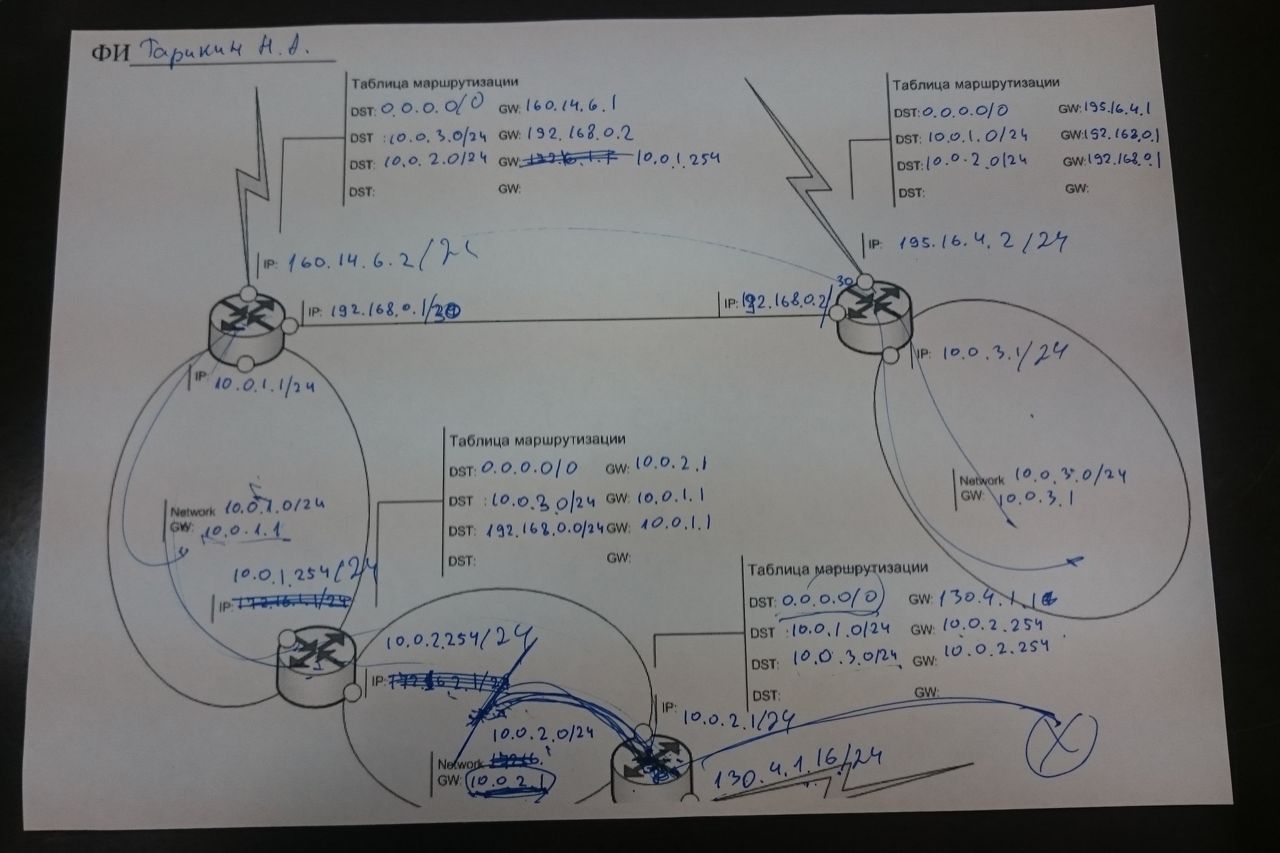 ФИ Тарикин Н.А.
Таблица маршрутизации
DST: 0.0.0.0/0 GW: 160.14.6.1
DST: 10.0.3.0/24 GW: 192.168.0.2
DST: 10.0.2.0/24 GW: 10.0.1.254
DST: GW:
Таблица маршрутизации
DST: 0.0.0.0/0 GW: 195.16.4.1
DST: 10.0.1.0/24 GW: 192.168.0.1
DST: 10.0.2.0/24 GW: 192.168.0.1
DST: GW:
IP: 160.14.6.2/24
IP: 195.16.4.2/24
IP: 192.168.0.1/30
IP: 192.168.0.2/30
IP: 10.0.1.1/24
IP: 10.0.3.1/24
Таблица маршрутизации
DST: 0.0.0.0/0 GW: 10.0.2.1
DST: 10.0.3.0/24 GW: 10.0.1.1
DST: 192.168.0.0/24 GW: 10.0.1.1
DST: GW:
Network 10.0.3.0/24
GW: 10.0.3.1
Network 10.0.1.0/24
GW: 10.0.1.1
10.0.1.254/24
IP: 172.16.1.1/24
Таблица маршрутизации
DST: 0.0.0.0/0 GW:
DST: 10.0.1.0/24 GW: 10.0.2.254
DST: 10.0.3.0/24 GW: 10.0.2.254
DST: GW:
10.0.2.254/24
IP:
IP: 10.0.2.1/24
10.0.2.0/24
Network
GW: 10.0.2.1
130.4.1.16/24